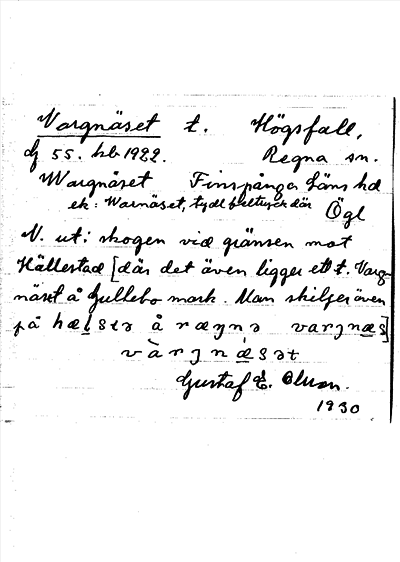 Vargnäset t. Högsfall,
dj 55. hb 1922. Regna sn.
Wargnäset Finspånga Läns hd
ek: Warnäset, tydl Ögl
N. ut i skogen vid gränsen mot
Hällestad [där det även ligger ett t. Varg-
näset å Gullebo mark. Man skiljer även
på hæḷstə å ræŋnə varjnæs]
vàrjnæ̀sət
Gustaf E. Olsson.
1930